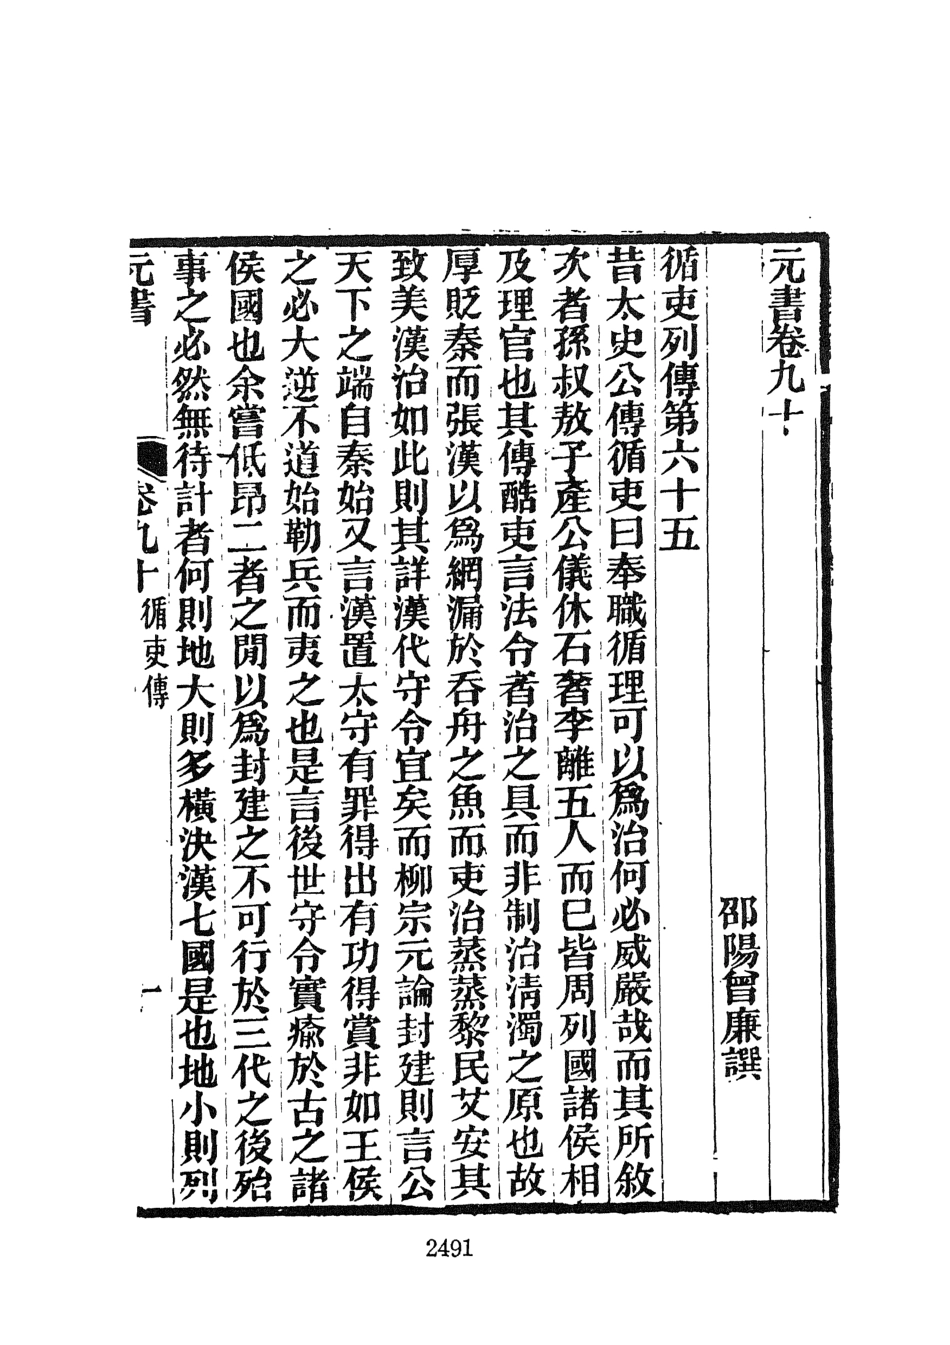 元書卷九十
邵陽曾廉譔
循吏列傳第六十五
昔太史公傳循吏曰奉職循理可以爲治何必威嚴哉而其所敘
次者孫叔敖子產公儀休石奢李離五人而已皆周列國諸侯相
及理官也其傳酷吏言法令者治之具而非制治淸濁之原也故
厚貶秦而張漢以爲網漏於吞舟之魚而吏治蒸蒸黎民艾安其
致美漢治如此則其詳漢代守令宜矣而柳宗元論封建則言公
天下之端自秦始又言漢置太守有罪得出有功得賞非如王侯
之必大逆不道始勒兵而夷之也是言後世守令實瘉於古之諸
侯國也余嘗低昂二者之閒以爲封建之不可行於三代之後殆
事之必然無待計者何則地大則多橫決漢七國是也地小則列
元書
卷九十
循吏傳
一
2491